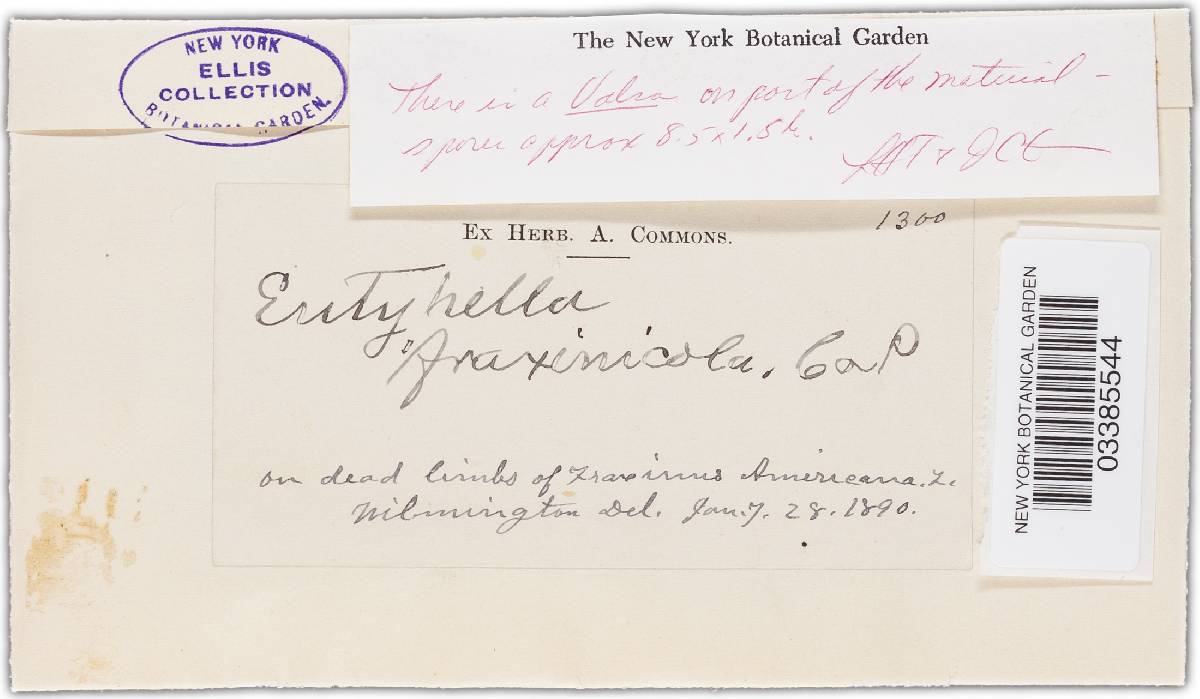 NEW YORK
ELLIS
COLLECTION
BOTANICAL GARDEN.
The New York Botanical Garden
There is a Valsa on part of the material –
spores approx 8.5 x 1.5 µ.
Ex Herb. A. Commons.
1300
Eutypella
fraxinicola. C &
on dead limbs of Fraxinus Americana. L.
Wilmington Del. Jany. 28. 1890.
NEW YORK BOTANICAL GARDEN
03385544